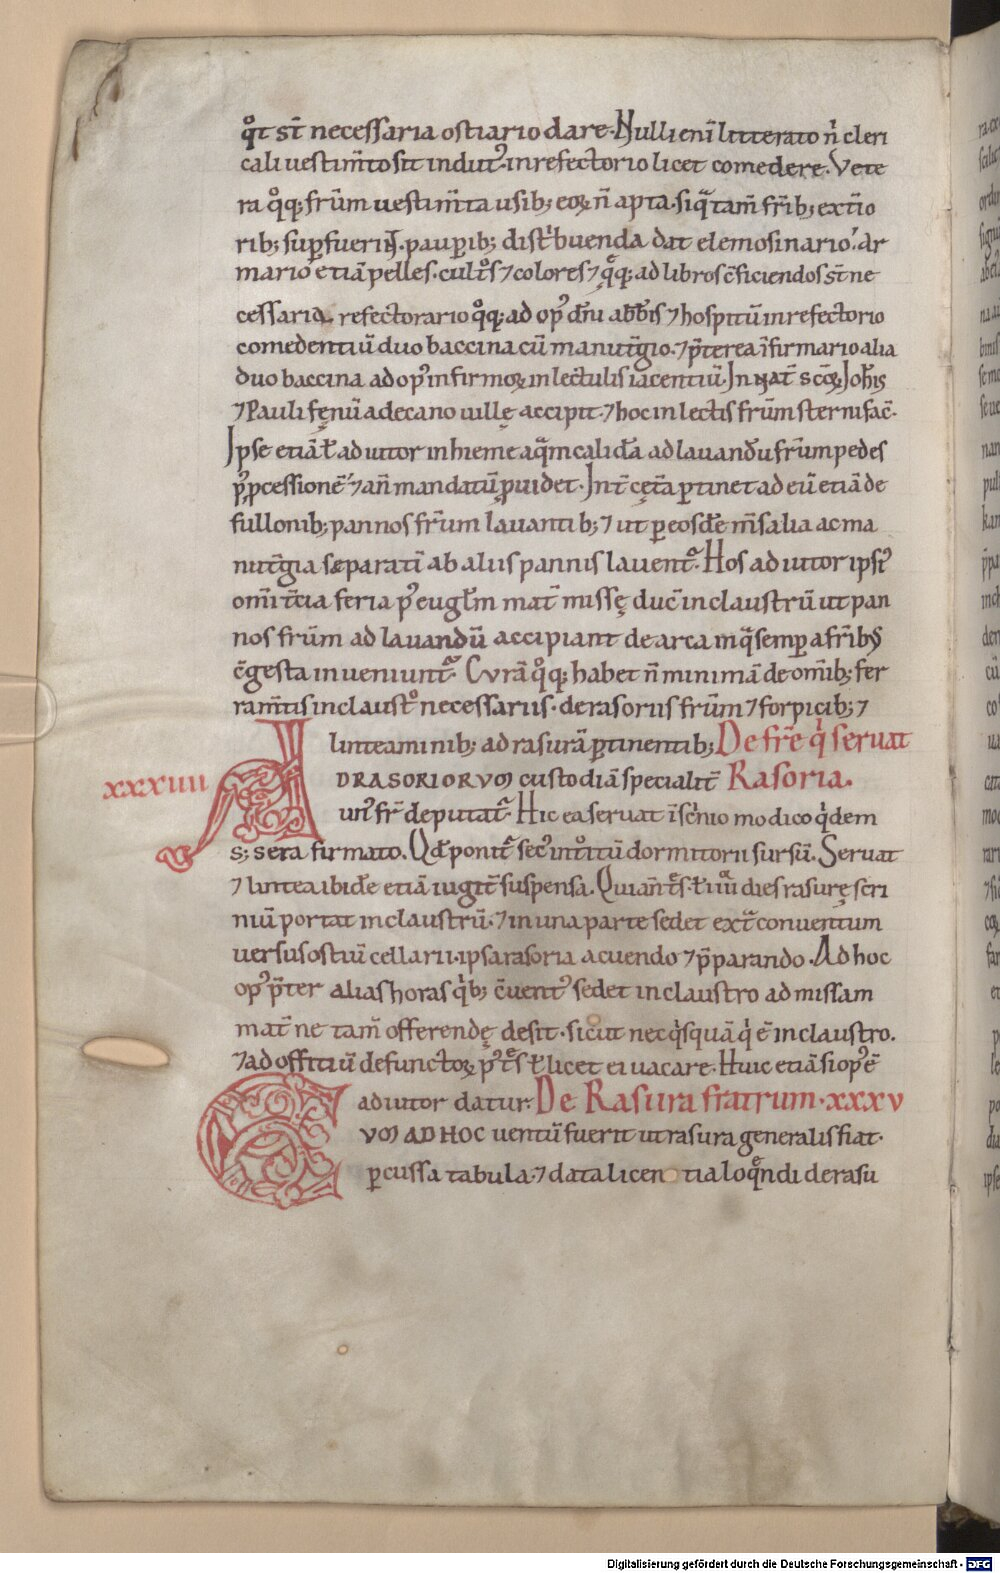 qͦt st̄ necessaria ostiario dare. Nulli eni̅ litterato n̄ cleri
cali uestim̅to sit indut᾽ in refectorio licet comedere. Vete
ra qͦq; fr̅um uestim̅ta usib; eoꝝ n̄ apta. siqᷓ tam̅ fr̅ib; ext̅io
rib; suꝑfuerint. pauꝑib; distⁱbuenda dat elemosinario. ar
mario etiā pelles. cultͦs ⁊ colores ⁊ qͤq; ad libros c̅ficiendos st̅ ne
cessaria. refectorario qͦq; ad op᾽ dn̅i abb̅is ⁊ hospitū in refectorio
comedentiū duo baccina cū manut̅gio. ⁊ p̅terea ī firmario alia
duo baccina ad op᾽ infirmoꝝ in lectulis iacentiū. In nat̅ sc̅oꝝ Joh̅is
⁊ Pauli fęnū a decano uillę accipit. ⁊ hoc in lectis fr̅um sterni fac̅.
Ipse etiā ł adiutor in hieme aqᷓm calidā ad lauandū fr̅um pedes
p᾽ ꝓcessionē ⁊ an̄ mandatū ꝓuidet. Int̅ cęt̅a ꝑtinet ad eū etiā de
fullonib; pannos fr̅um lauantib; ⁊ ut ꝑ eosdē m̅salia ac ma
nut̅gia separati̅ ab aliis pannis lauentᷓ. Hos adiutor ipsi᾽
omi̅ t̅cia feria p᾽ eugl̅m mat̅ missę duc̅ in claustrū ut pan
nos fr̅um ad lauandū accipiant de arca in qᷓ semꝑ a fr̅ib;
c̅gesta inueniuntᷓ. Curā qͦq; habet n̄ minimā de omi̅b; fer
ram̅tis in claustͦ necessariis. de rasoriis fr̅um ⁊ forpicib; ⁊
linteaminib; ad rasurā ꝑtinentib; De fr̅e qⁱ seruat
xxxiiii
AD RASORIORVM custodiā specialit̅ Rasoria.
un᾽ fr̅ deputatᷓ. Hic ea seruat ī scⁱnio modico qⁱdem
s; sera firmato. Qd̅ ponitᷓ sec᾽ intͦitū dormitorii sursū. Seruat
⁊ lintea ibidē etiā iugit̅ suspensa. Quia n̄ tͤs ł iiiiͦʳ dies rasurę scri
niū portat in claustrū. ⁊ in una parte sedet extᷓ conuentum
uersus ostiū cellarii. ipsa rasoria acuendo ⁊ p̅parando. Ad hoc
op᾽ p̅ter alias horas qⁱb; c̅uent᾽ sedet in claustro ad missam
mat̅ ne tam̅ offerendę desit. sicut nec qⁱsquā qⁱ ē in claustro.
⁊ ad offitiū defunctoꝝ p᾽ tͤs ł licet ei uacare. Huic etiā si op᾽ ē
adiutor datur. De Rasura fratrum. xxxv
CVM AD HOC uentū fuerit ut rasura generalis fiat.
ꝑcussa tabula. ⁊ data licentia loqͤndi de rasu
Digitalisierung gefördert durch die Deutsche Forschungsgemeinschaft - DFG